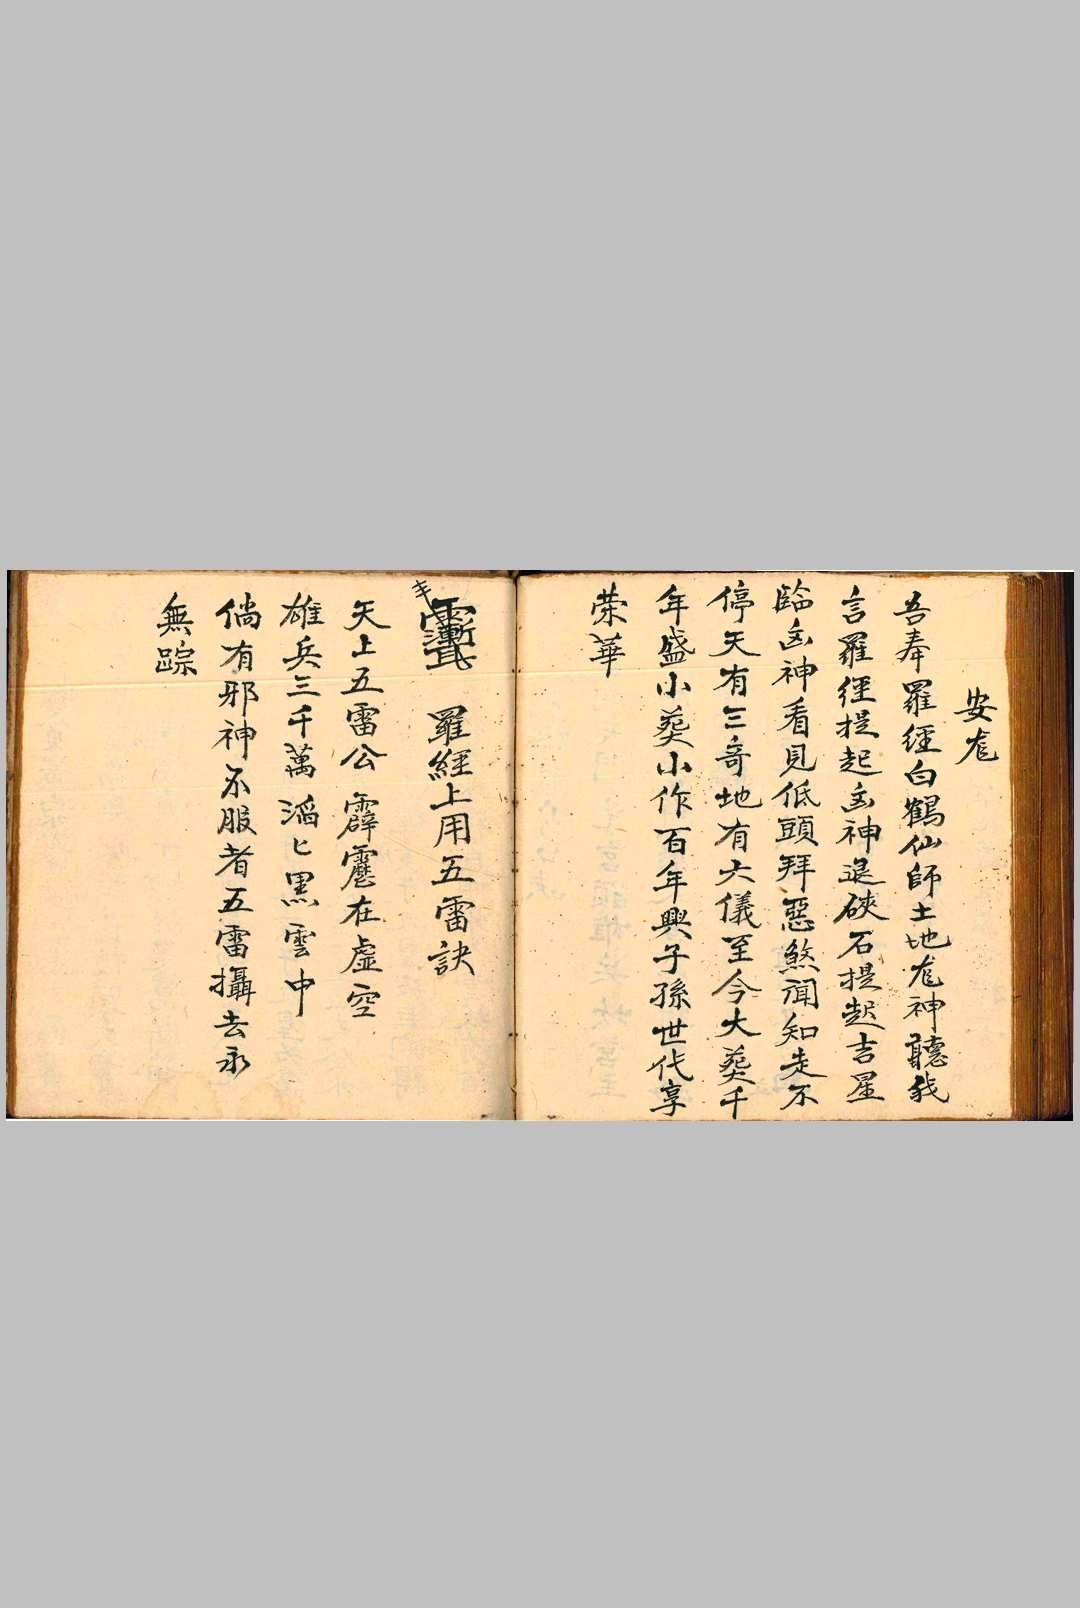 安龙
吾奉羅經白鶴仙師土地龙神聽我
言羅經提起凶神退硤石提起吉星
臨凶神看見低頭拜惡煞闻知走不
停天有三奇地有六儀至今大葵千
年盛小葵小作百年興子孫世代享
荣華
羅經上用五雷訣
天上五雷公霹靂在虛空
雄兵三千萬滔匕黑雲中
倘有邪神不服者五雷攝去永
無踪